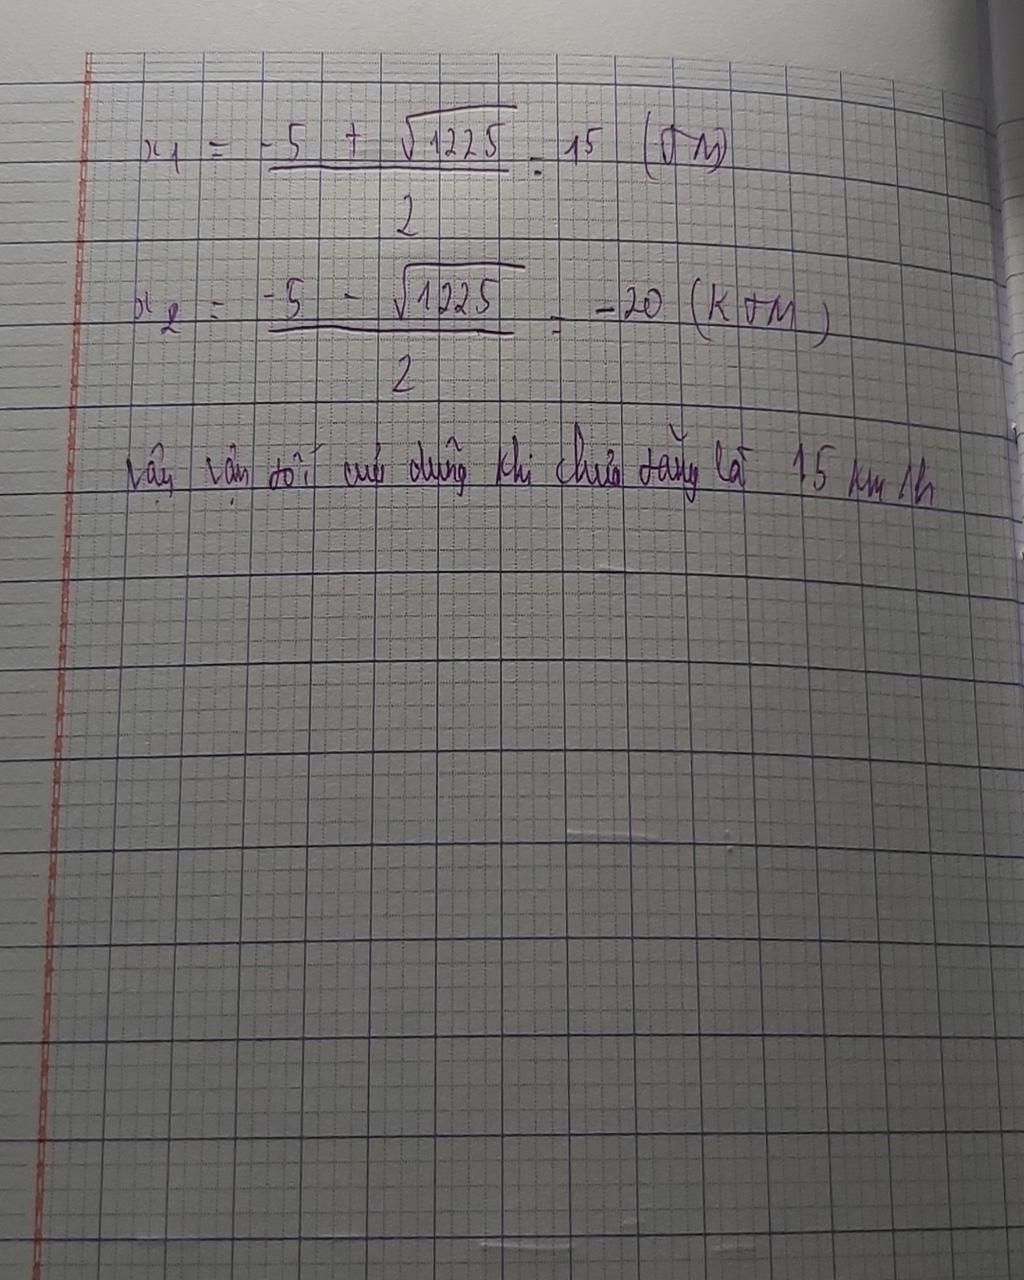 x₁ = (-5 + √1225) / 2 = 15 (TM)
x₂ = (-5 - √1225) / 2 = -20 (KTM)
Vậy vận tốc của dũng khi chưa tăng là 15 km/h